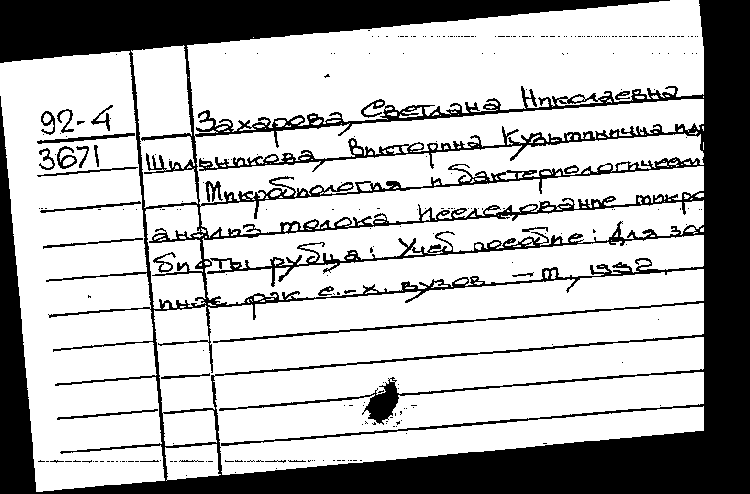 92-4 Захарова, Светлана Николаевна
3671 Шильникова, Виктория Кузьминична и др
Микробиология и бактериологический
анализ молока. Исследование микро
биоты рубца: Учеб. пособие: Для зоо
инж. фак с.-х. вузов. – М., 1992.